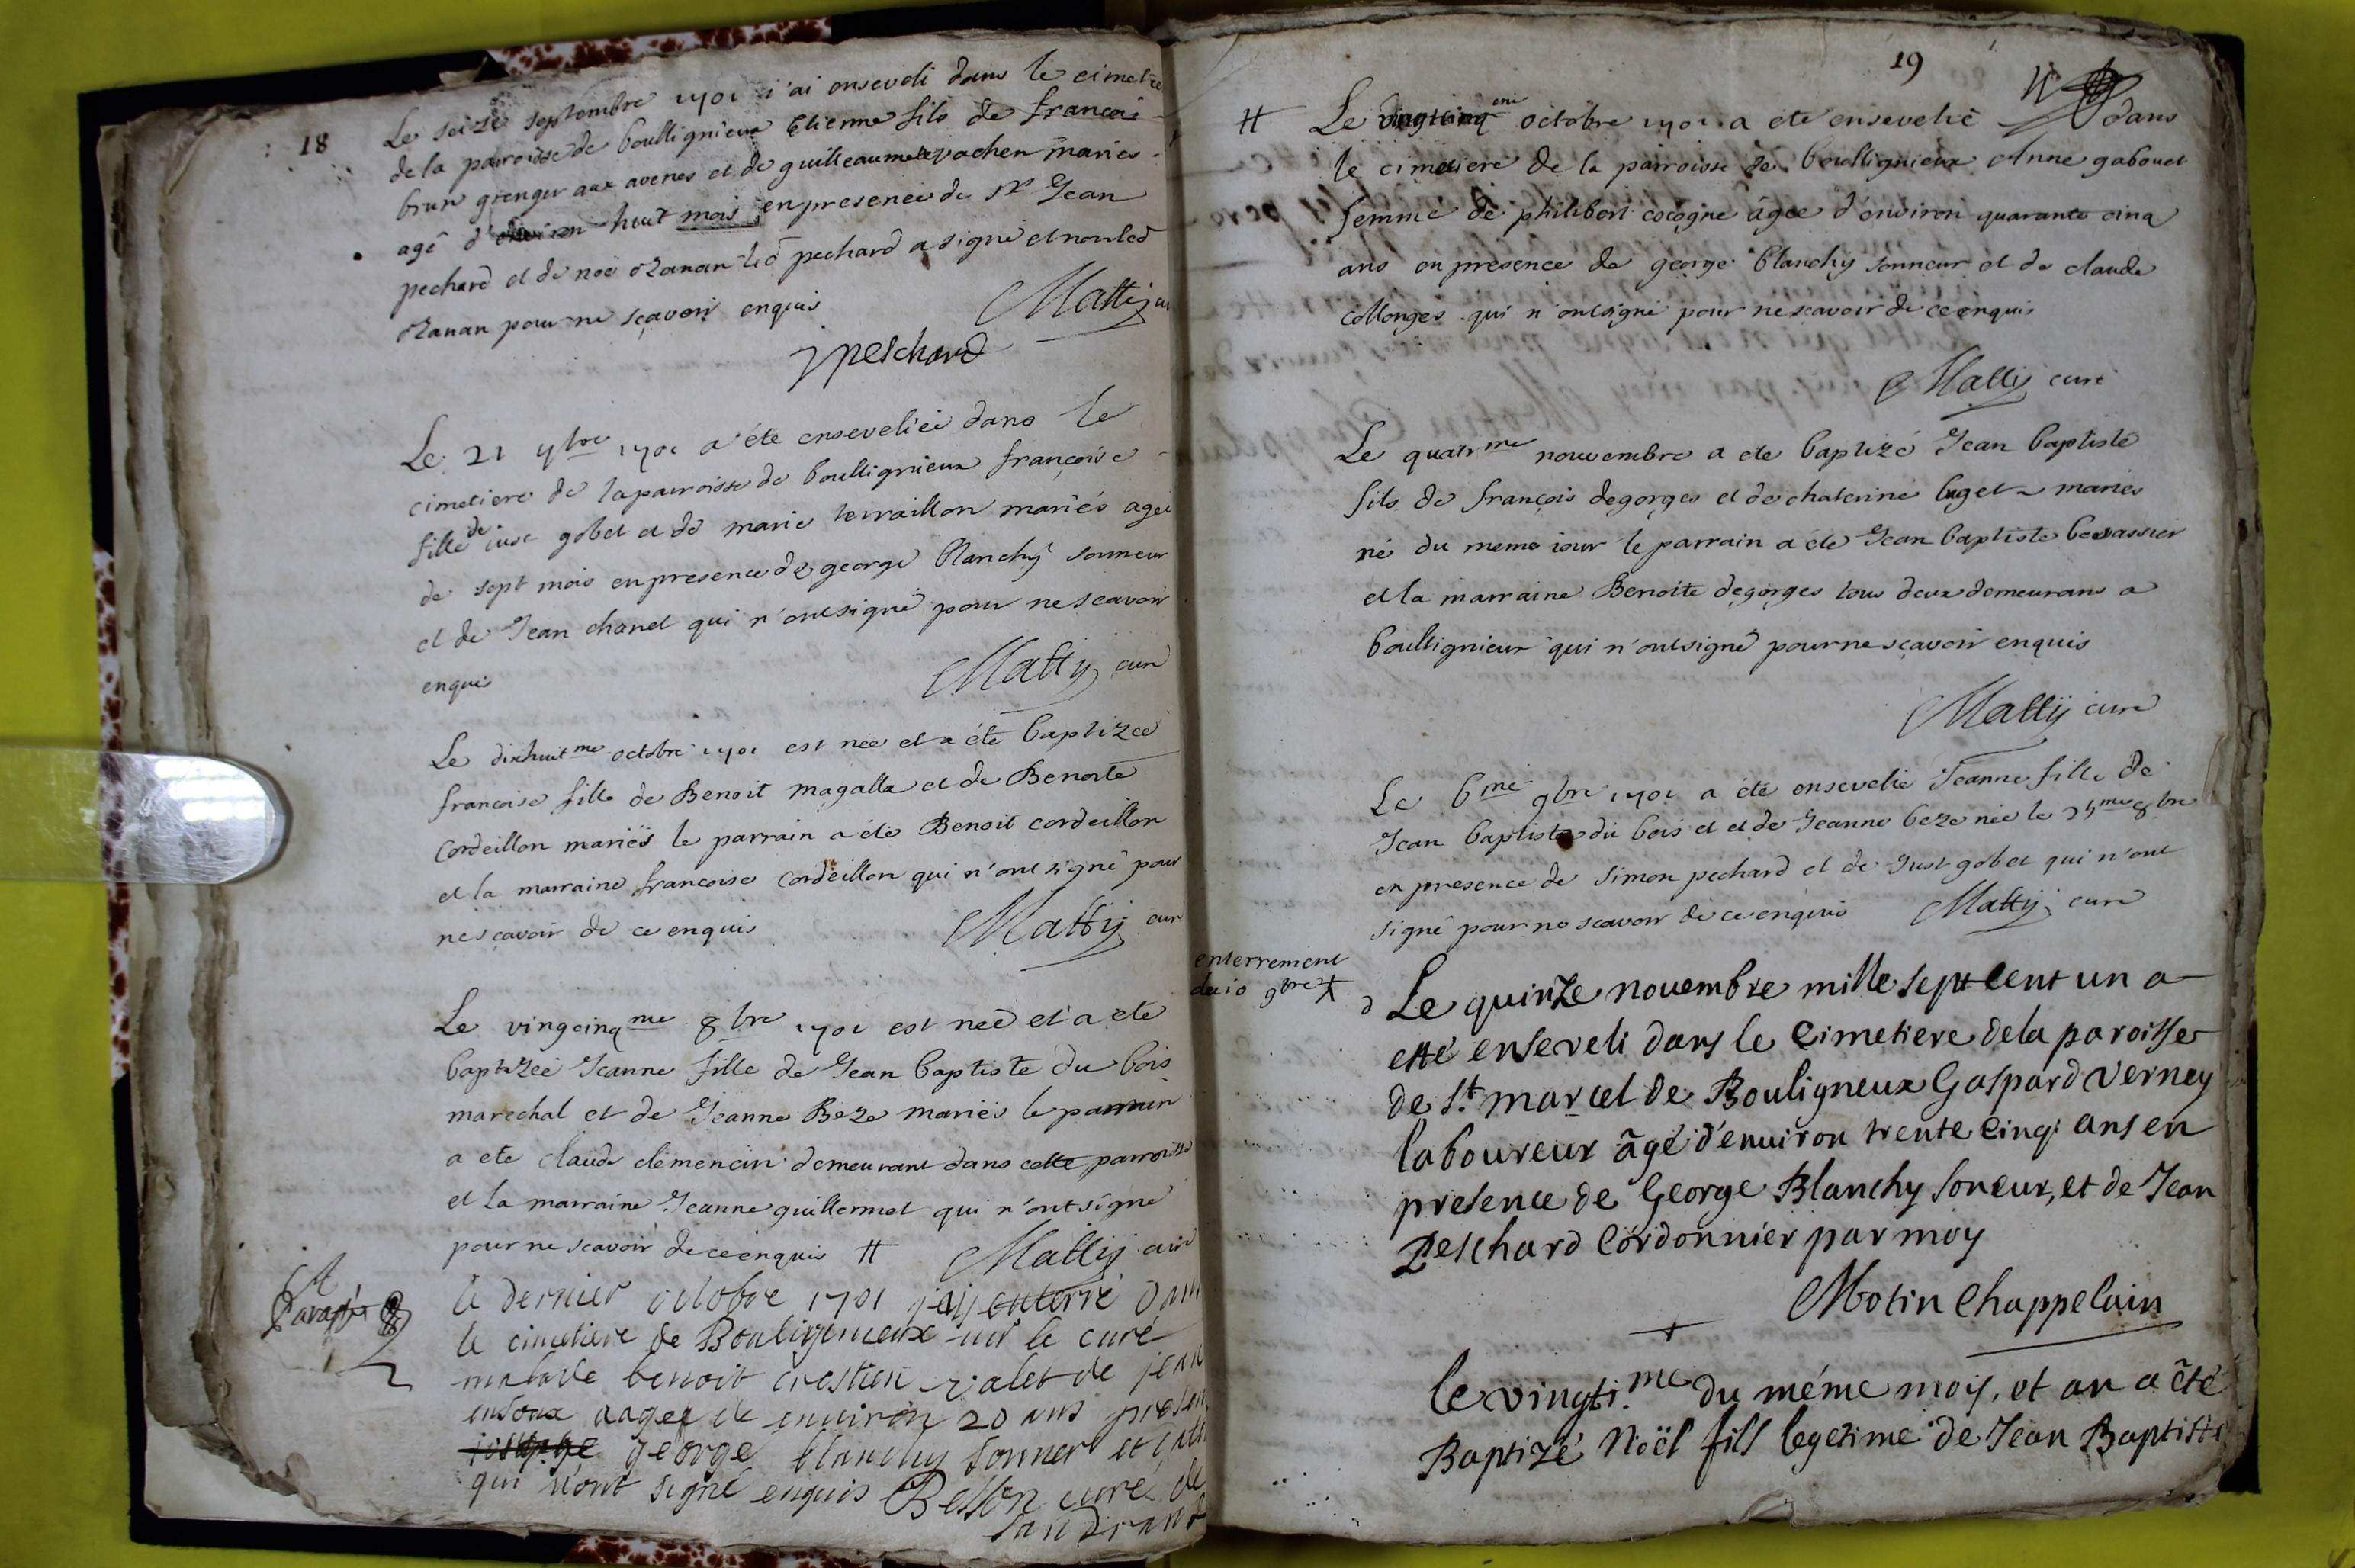 18
Le seize septembre 1701 i'ai enseveli dans le cimetiere
de la parroisse de boullignieux Etienne fils de francois
brun grenger aux avenes et de guilleaumette vachen mariés
agé d'environ huit mois en presence de Sr Jean
pechard et de noé ozanan led pechard a signé et non led
ozanan pour ne sçavoir enquis Mattij cur
J peschard
Le 21 7bre 1701 a été enseveliée dans le
cimetiere de la parroisse de boullignieux françoise
fille de iust gobet et de marie terraillon mariés agée
de sept mois en presence de george blanchy sonneur
et de Jean chanel qui n'ont signé pour ne scavoir
enquis Mattij curé
Le dixhuitme octobre 1701 est née et a été baptizée
francoise fille de Benoit magalla et de Benoite
Cordeillon mariés le parrain a été Benoit cordeillon
et la marraine francoise cordeillon qui n'ont signé pour
ne sçavoir de ce enquis Mattij curé
Le vingcinqme 8bre 1701 est née et a eté
baptizée Jeanne fille de Jean baptiste du bois
marechal et de Jeanne Beze mariés le parrain
a eté claude clemencin demeurant dans cette parroisse
et la marraine Jeanne guillermet qui n'ont signé
pour ne scavoir de ce enquis # Mattij curé
le dernier octobre 1701 jay enterré dans
le cimetiere de Bouligneux mr le curé
malade benoit crestien valet de jean
aagee de environ 20 ans
george blanchy sonner et
qui n'ont signé enquis Besson curé de
Sandrans
19
# Le vingtcinqeme octobre 1701 a eté ensevelie dans
le cimetiere de la parroisse de boullignieux Anne gabouet
femme de philibert cocogne âgée d'environ quarante cinq
ans en presence de george blanchy sonneur et de claude
collonges qui n'ont signé pour ne scavoir de ce enquis
Mattij curé
Le quatrme nouvembre a eté baptizé Jean baptiste
fils de françois degorges et de chaterine luget mariés
né du meme iour le parrain a été Jean baptiste bessassier
et la marraine Benoite degorges tous deux demeurans a
boullignieux qui n'ont signé pour ne scavoir enquis
Mattij curé
Le 6me 9bre 1701 a été ensevelie Jeanne fille de
Jean baptiste du bois et et de Jeanne beze née le 25me 8bre
en presence de Simon pechard et de Just gobet qui n'ont
signé pour ne scavoir de ce enquis Mattij curé
enterrement
du 10 9bre
Le quinze novembre mille sept cent un a
etté enseveli dans le cimetiere de la paroisse
de St. marcel de Bouligneux Gaspard Verney
laboureur âgé d'enuiron trente cinq ans en
presence de George Blanchy soneur, et de Jean
Peschard Cordonnier par moy
Motin Chappelain
le vingti.me du méme mois, et an a êté
Baptizé Noël fils legetime de Jean Baptiste